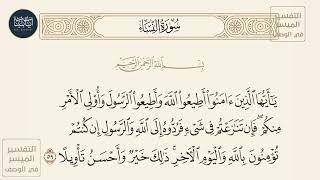 سُورَةُ النِّسَاءِ
التفسير
الميسر
في الوصف
بِسْمِ اللَّهِ الرَّحْمَٰنِ الرَّحِيمِ
يَٰٓأَيُّهَا ٱلَّذِينَ ءَامَنُوٓاْ أَطِيعُواْ ٱللَّهَ وَأَطِيعُواْ ٱلرَّسُولَ وَأُوْلِي ٱلۡأَمۡرِ
مِنكُمۡۖ فَإِن تَنَٰزَعۡتُمۡ فِي شَيۡءٖ فَرُدُّوهُ إِلَى ٱللَّهِ وَٱلرَّسُولِ إِن كُنتُمۡ
تُؤۡمِنُونَ بِٱللَّهِ وَٱلۡيَوۡمِ ٱلۡأٓخِرِۚ ذَٰلِكَ خَيۡرٞ وَأَحۡسَنُ تَأۡوِيلًا ٥٩
التفسير
الميسر
في الوصف